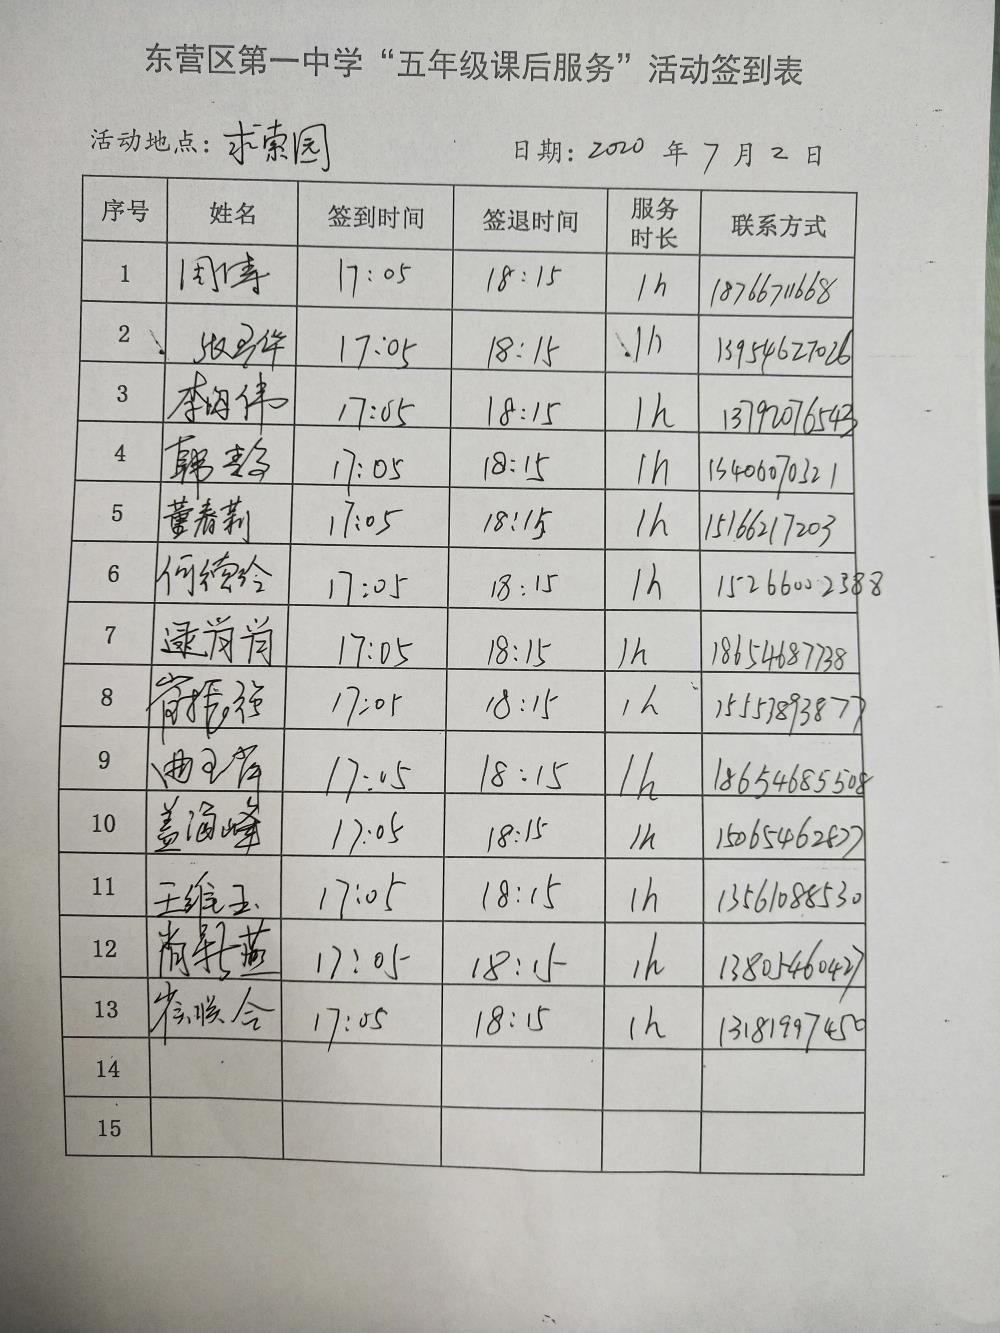 东营区第一中学“五年级课后服务”活动签到表
活动地点：求索园 日期：2020 年 7 月 2 日
序号 姓名 签到时间 签退时间 服务时长 联系方式
1 周涛 17:05 18:15 1h 18766711668
2 17:05 18:15 1h 13954627026
3 李海伟 17:05 18:15 1h 13792076543
4 韩 17:05 18:15 1h 13406070321
5 董春莉 17:05 18:15 1h 15166217203
6 何德玲 17:05 18:15 1h 15266002388
7 逯肖肖 17:05 18:15 1h 18654687738
8 崔振强 17:05 18:15 1h 15553893877
9 曲玉 17:05 18:15 1h 18654685508
10 盖海峰 17:05 18:15 1h 15065462877
11 王维玉 17:05 18:15 1h 13561088530
12 尚新燕 17:05 18:15 1h 13805460427
13 崔联合 17:05 18:15 1h 13181997450
14
15